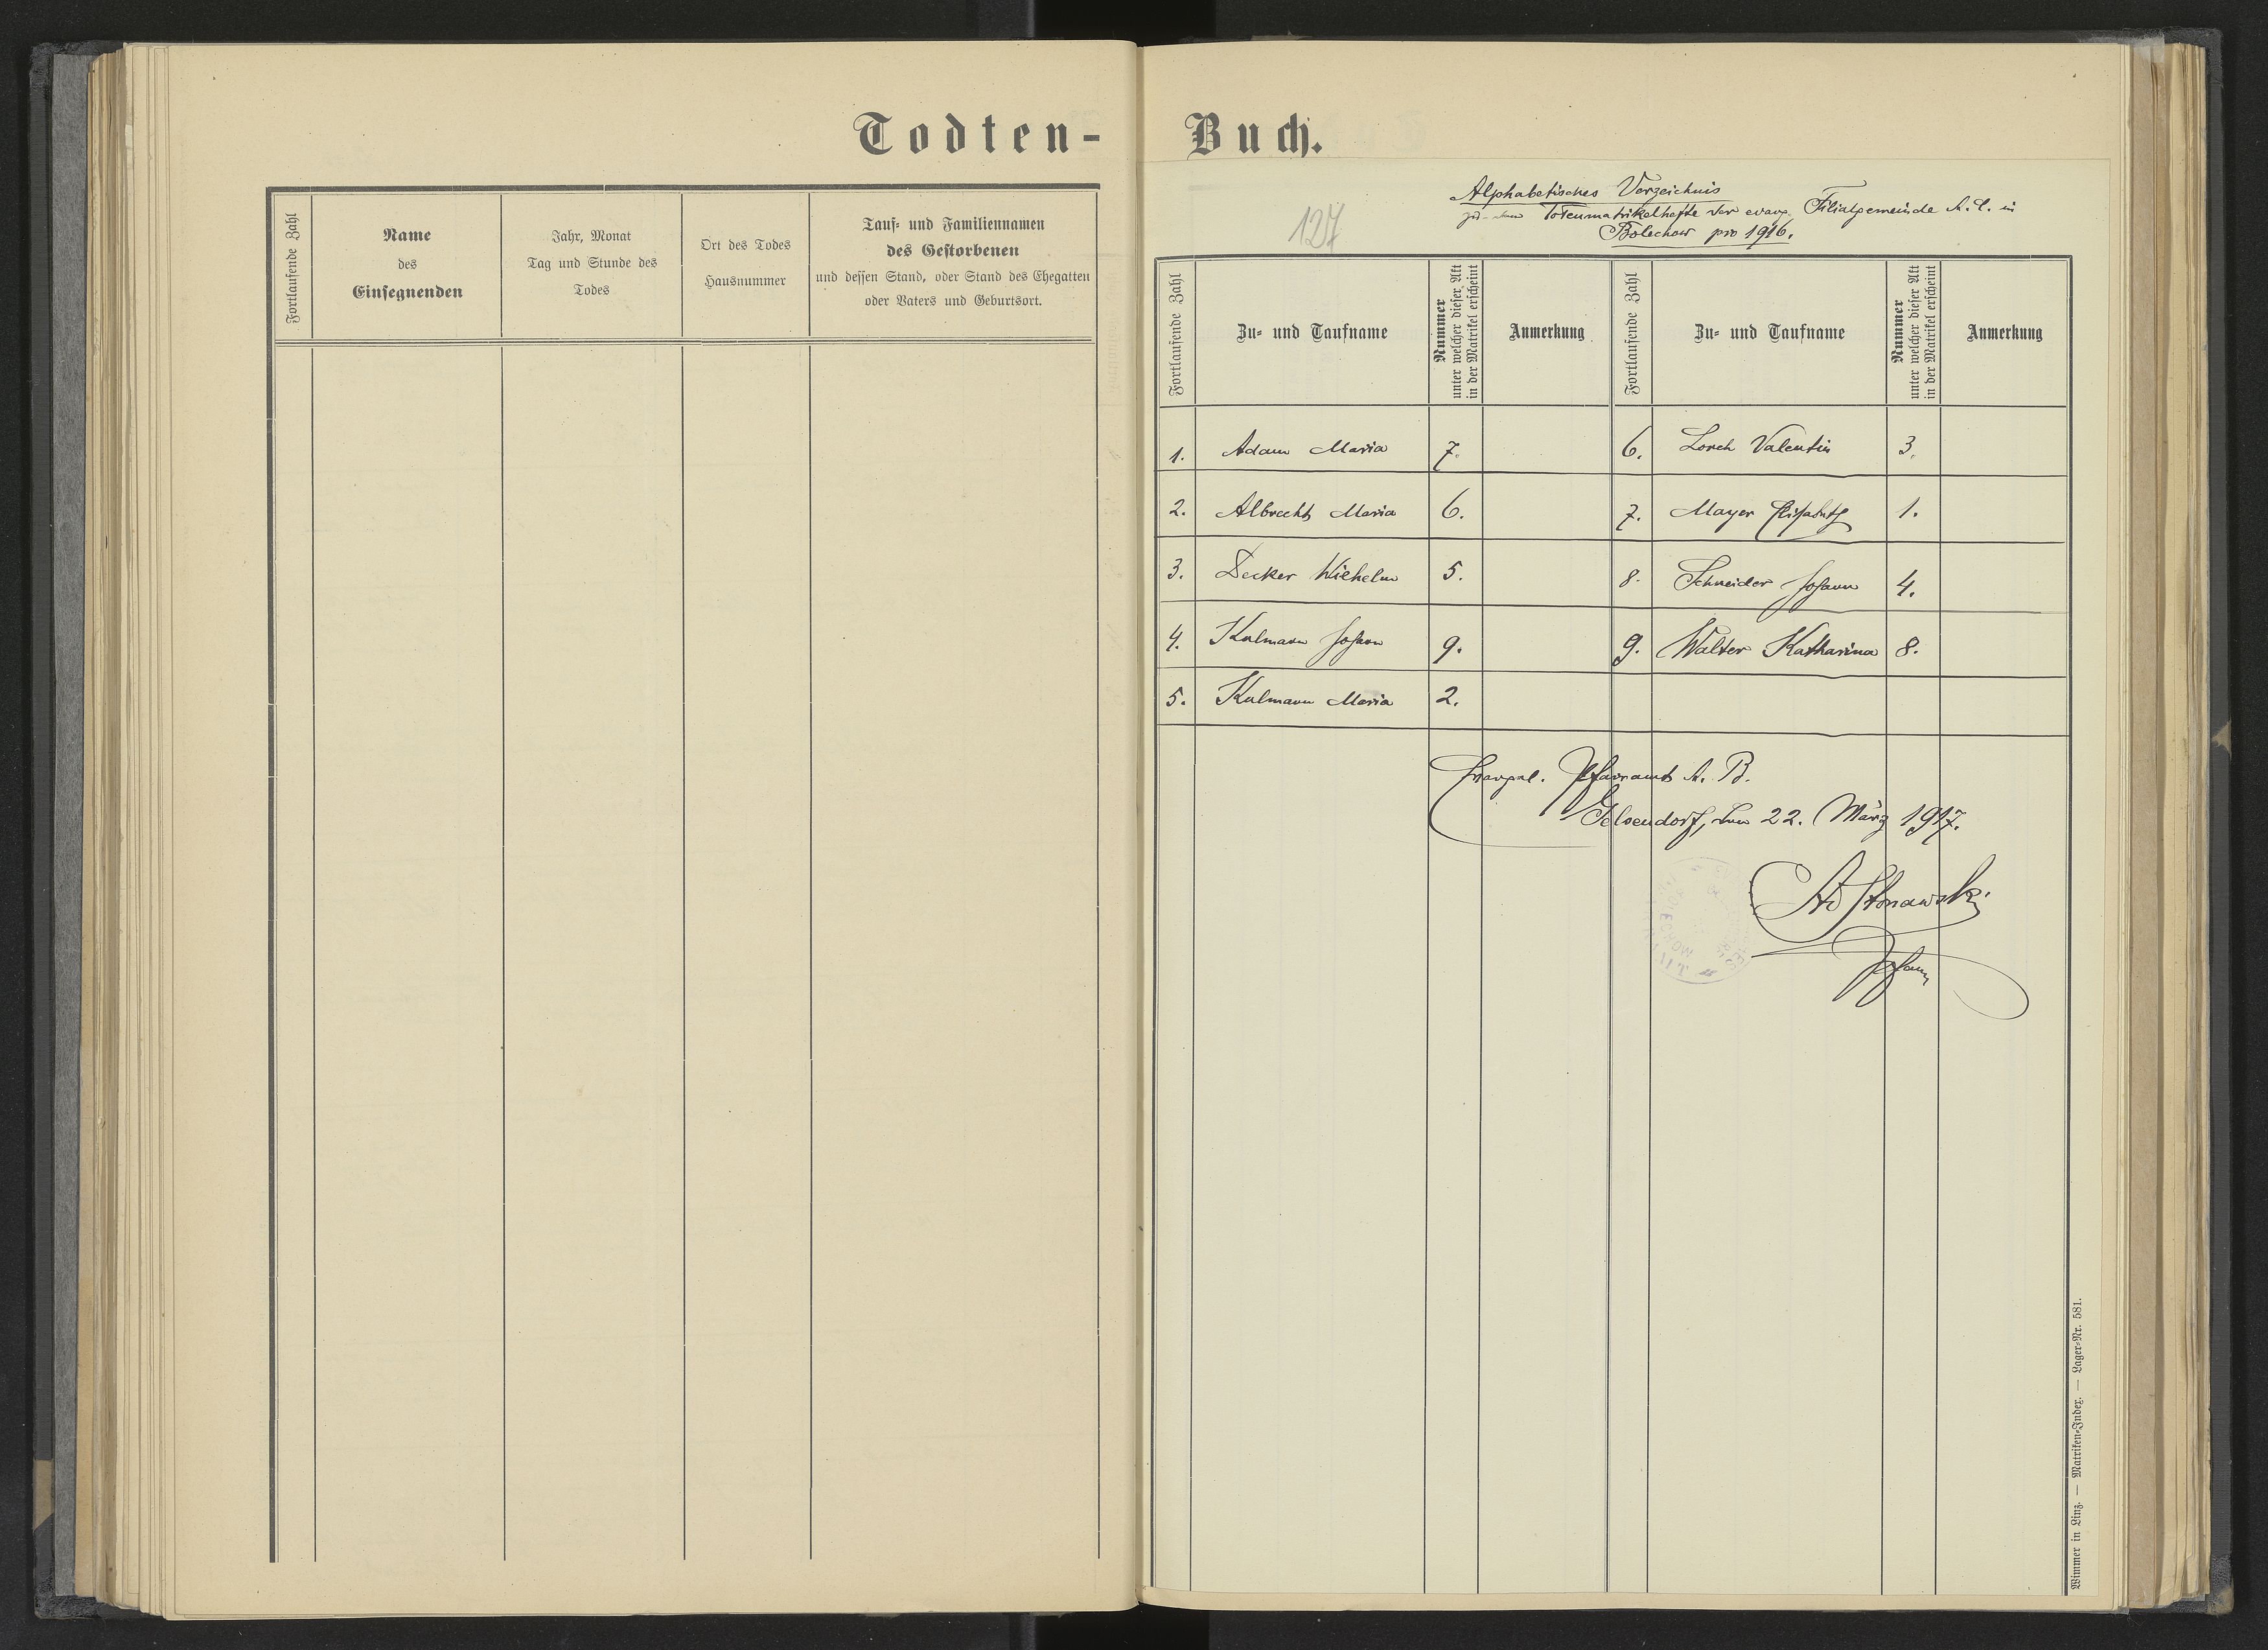 Todten-
Fortlaufende Zahl
Name
des
Einsegnenden
Jahr, Monat
Tag und Stunde des
Todes
Ort des Todes
Hausnummer
Tauf- und Familiennamen
des Gestorbenen
und dessen Stand, oder Stand des Ehegatten
oder Vaters und Geburtsort.
Buch.
127
Alphabetisches Verzeichnis
zu dem Totenmatrikelhefte der evang. Filialgemeinde A. C. in
Bolechow pro 1916.
Fortlaufende Zahl
Zu- und Taufname
Nummer
unter welcher dieser Akt
in der Matrikel erscheint
Anmerkung
Fortlaufende Zahl
Zu- und Taufname
Nummer
unter welcher dieser Akt
in der Matrikel erscheint
Anmerkung
1. Adam Maria 7.
2. Albrecht Maria 6.
3. Decker Wilhelm 5.
4. Kulmann Johann 9.
5. Kulmann Maria 2.
6. Lorch Valentin 3.
7. Mayer Elisabeth 1.
8. Schneider Johann 4.
9. Walter Katharina 8.
Evangel. Pfarramt A. B.
Gelsendorf, den 22. März 1917.
Stonawski
Pfarrer
Wimmer in Linz. — Matriken-Index. — Lager-Nr. 581.